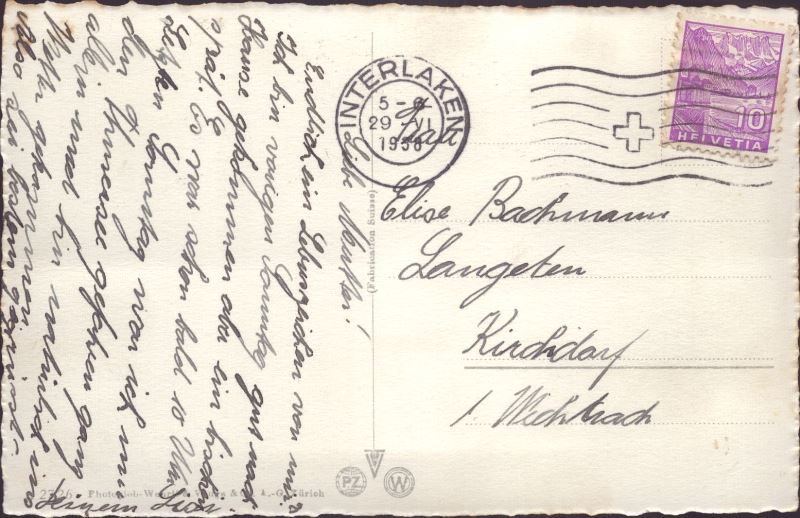 Liebe Mutter!
Endlich ein Lebenzeichen von mir.
Ich bin vorigen Sonntag gut nach
Hause gekommen aber ein bischen
spät. Es war schon bald 10 Uhr
Letzten Sonntag war ich mit
den gefahren ganz
allein und bin natürlich ins
gekommen
Also sei bestens gegrüsst
Deinem
INTERLAKEN
29. VI
HELVETIA
10
Elise Bachmann
Langeten
Kirchdorf
b/ Wichtrach
(Fabrication Suisse)
PZ
W
2326 Photoglob-Wehrli & A.-G. Zürich